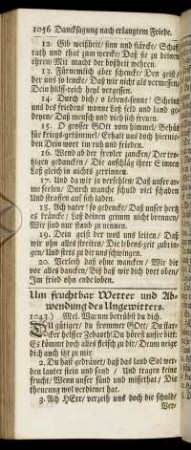 1056 Dancksagung nach erlangtem Friede.
12. Gib weißheit/ sinn und stärcke/ Schaf
rath und that zum wercke/ Daß sie zu deinen
ehren/ Mit macht der boßheit wehren.
13. Fürnemlich aber schencke/ Den geist/
der uns so lencke/ Daß wir nicht als vermessen/
Dein hülff-reich heyl vergessen.
14. Durch dich/ o lebens-sonne/ Scheint
uns des friedens wonne Laß feld und land ge-
deyen/ Daß mensch und vieh sich freuen.
15. O grosser GOtt vom himmel/ Behüt
für kriegs-getümmel/ Erhalt uns doch hiernie-
den Dein wort in ruh und frieden.
16. Wend ab der frevler zancken/ Der tro-
tzigen gedancken/ Die anschläg ihrer Sinnen
Laß gleich in nichts zerrinnen.
17. Und da wir ja verfehlen/ Daß unsre ar-
me seelen/ Durch manche schuld viel schaden
Und straffen auf sich laden.
18. Ach vater! so gedencke/ Daß unser hertz
es kräncke/ Laß deinen grimm nicht brennen/
Wir sind nur staub zu nennen.
19. Dein geist der woll uns leiten/ Daß
wir ohn alles streiten/ Die lebens-zeit zubrin-
gen/ Und stets zu dir uns schwingen.
20. Verleih daß ohne wancken/ Wir dir
vor alles dancken/ Biß daß wir dich dort oben/
Im fried ohn ende loben.
Um feuchtbar Wetter und Ab-
wendung des Ungewitters.
1043.) Mel. Warum betrübst du dich.
gütiger/ du frommer GOtt/ Du star-
cker helffer Zebaoth/ Du hörest unser bitt/
Es kömmt doch alles fleisch zu dir/ Drum neigt
dich auch itzt zu mir.
2. Du hast gedräuet/ daß das land Sol wer-
den lauter stein und sand/ Und tragen keine
frucht/ Wenn unser sünd und missethat/ Die
theurung wol verdienet hat.
3. Ach HErr/ vergeib uns doch die schuld/
Ver-